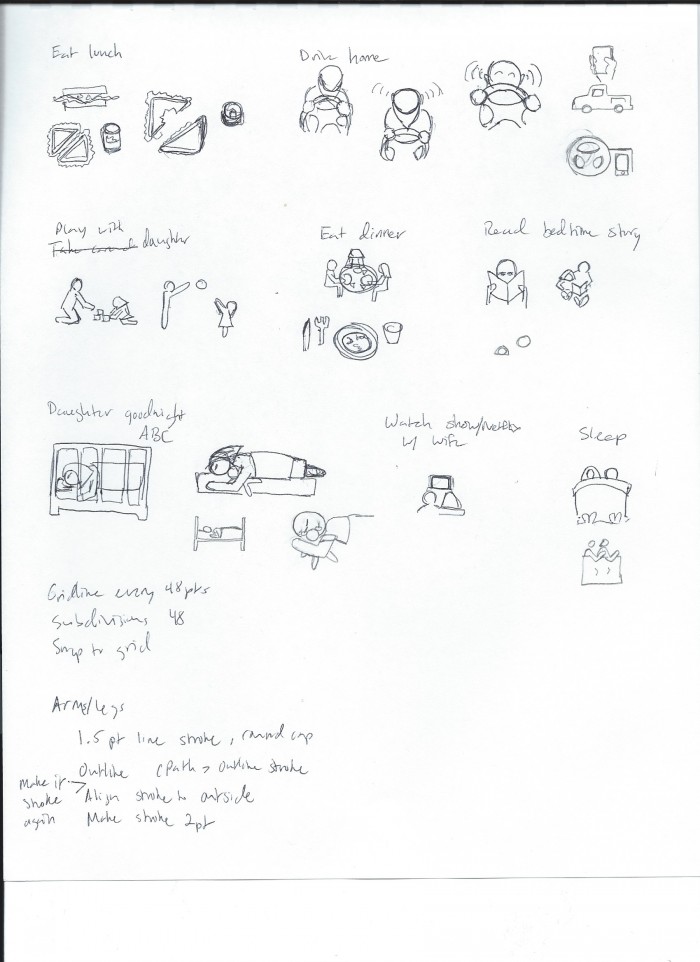 Eat lunch
Drive home
Play with
Take care of daughter
Eat dinner
Read bedtime story
Daughter goodnight
ABC
Watch show/Netflix
w/ wife
Sleep
Gridline every 48pts
Subdivisions 48
Snap to grid
Arms/legs
1.5 pt line stroke, round cap
Outline (Path > Outline stroke
Make it stroke again
Align stroke to outside
Make stroke 2pt